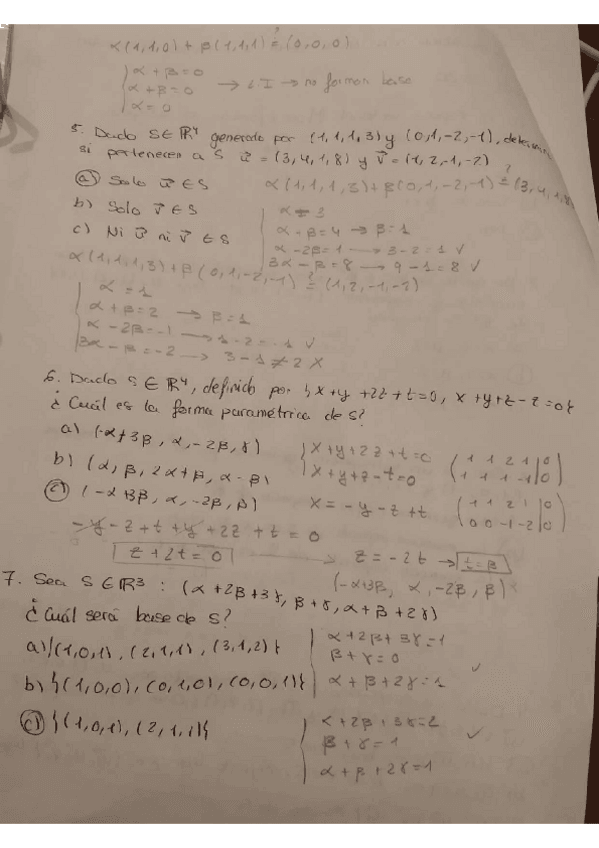 α(1,1,0) + β(1,1,1) ≟ (0,0,0)
α + β = 0
α + β = 0 → no forman base
α = 0
5. Dado S∈ℝ⁴ generado por (1,1,1,3) y (0,1,-2,-1), determina
si pertenecen a S u⃗ = (3,4,1,8) y v⃗ = (1,2,-1,-2)
a) Solo u⃗ ∈ S α(1,1,1,3) + β(0,1,-2,-1) ≟ (3,4,1,8)
b) Solo v⃗ ∈ S α = 3
c) Ni u⃗ ni v⃗ ∈ S α - β = 4 → β = 1
α - 2β = 1 → 3 - 2 = 1 ✓
3α - β = 8 → 9 - 1 = 8 ✓
α(1,1,1,3) + β(0,1,-2,-1) ≟ (1,2,-1,-2)
α = 1
α + β = 2 → β = 1
α - 2β = -1 → 1 - 2 = -1 ✓
3α - β = -2 → 3 - 1 ≠ 2 X
6. Dado S ∈ ℝ⁴, definido por {x+y+2z+t=0, x+y+z-z=0}
¿Cuál es la forma paramétrica de S?
a) (-α+3β, α, -2β, γ) x+y+2z+t=0 (1 1 2 1 | 0
b) (α, β, 2α+β, α-β) x+y+z-t=0 1 1 1 -1 | 0)
c) (-α+3β, α, -2β, β) x = -y - z + t (1 1 2 1 | 0
0 0 -1 -2 | 0)
-y - z + t + y + 2z + t = 0
z + 2t = 0 → z = -2t → t = β
(-α+3β, α, -2β, β)
7. Sea S∈ℝ³ : (α+2β+3γ, β+γ, α+β+2γ)
¿Cuál será base de S?
a) {(1,0,1), (2,1,1), (3,1,2)} α+2β+3γ=1
β+γ=0 ✓
b) {(1,0,0), (0,1,0), (0,0,1)} α+β+2γ=1
c) {(1,0,1), (2,1,1)} α+2β+3γ=2
β+γ=1 ✓
α+β+2γ=1